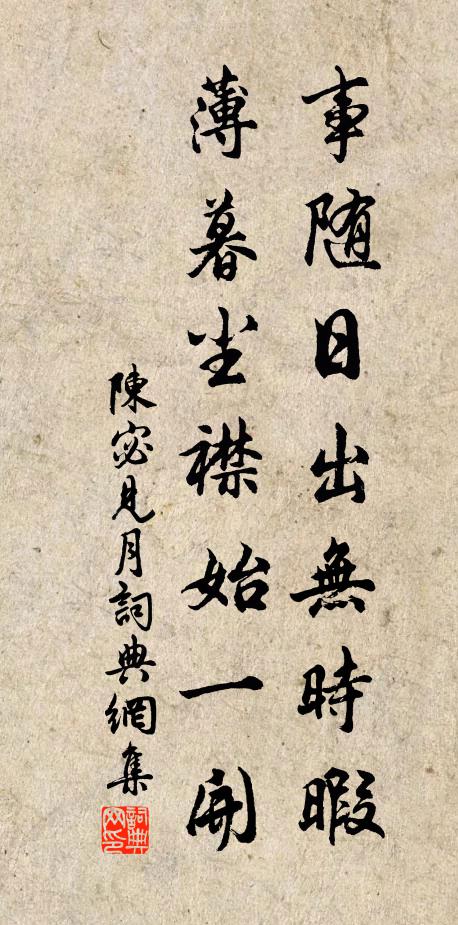 事随日出無時暇
薄暮尘襟始一開
陳宓見月詞典網集
詞典網印